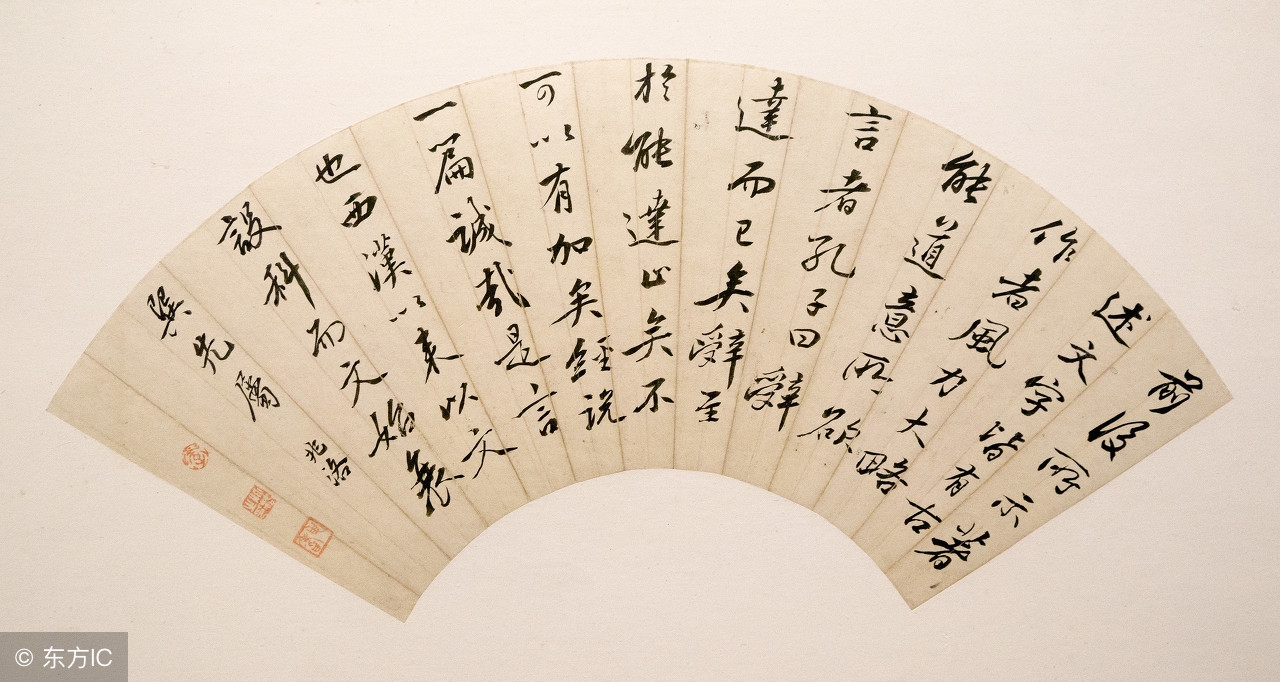 前後所示著
述文字皆有古
作者風力大略
能道意所欲
言者孔子曰辭
達而已矣辭至
於能達止矣不
可以有加矣經說
一篇誠哉是言
也西漢以來以文
設科而文始衰
巽先屬 兆洛
© 东方IC